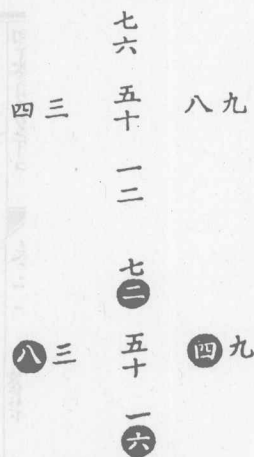 七六
四三 五十 八九
一二
七二
八三 五十 四九
一六